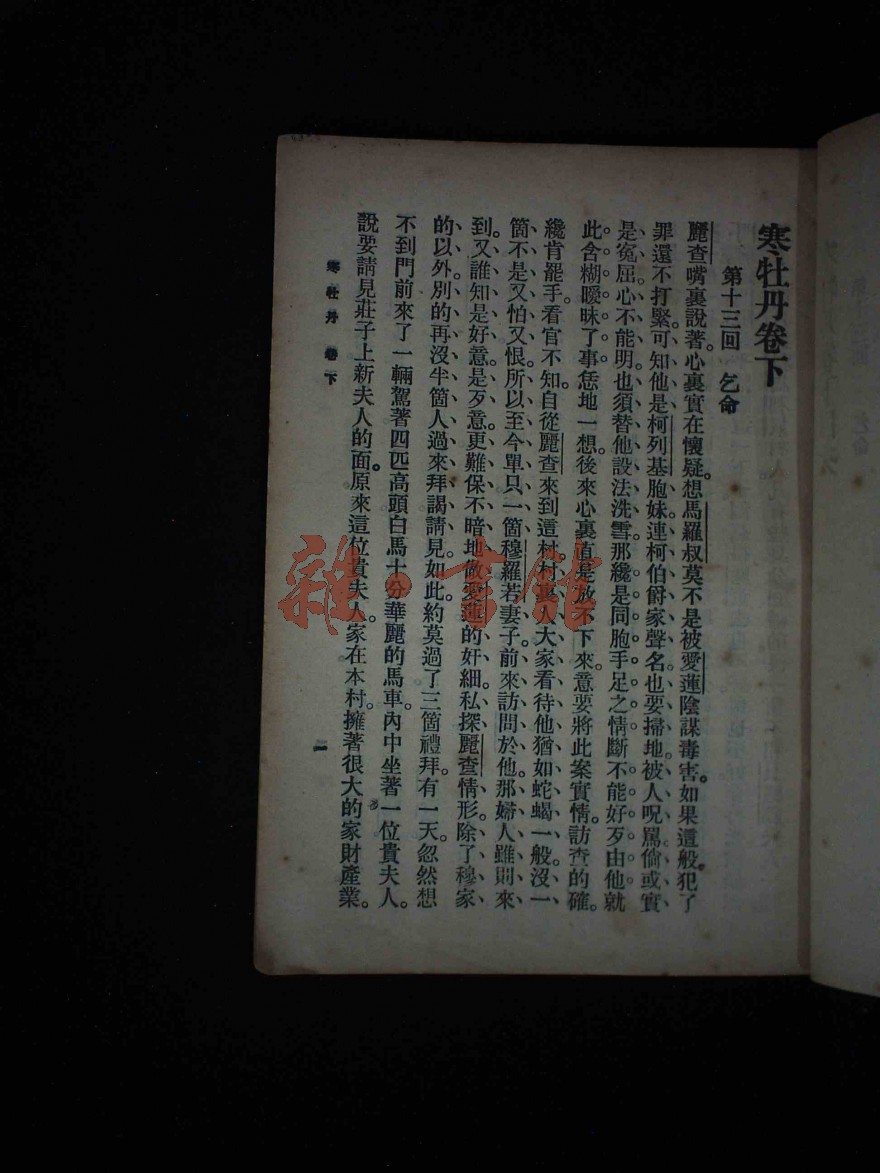 寒牡丹卷下
第十三回 乞命
麗查嘴裏說著。心裏實在懷疑。想馬羅叔莫不是被愛蓮陰謀毒害。如果這般犯了
罪還不打緊。可知他是柯列基胞妹連柯伯爵家聲名也要掃地被人呪罵倘或實
是冤屈心不能明也須替他設法洗雪那纔是同胞手足之情斷不能好歹由他就
此含糊曖昧了事恁地一想。後來心裏直是放不下來。意要將此案實情。訪查的確。
纔肯罷手看官不知。自從麗查來到這村。村裏人大家看待他猶如蛇蝎一般沒一
箇不是又怕又恨。所以至今單只一箇穆羅若妻子前來訪問於他。那婦人雖則來
到。又誰知是好意是歹意。更難保不暗地做愛蓮的奸細私探麗查情形。除了穆家
的以外。別的再沒半箇人過來拜謁請見。如此約莫過了三箇禮拜。有一天。忽然想
不到門前來了一輛駕著四匹高頭白馬十分華麗的馬車。內中坐著一位貴夫人。
說要請見莊子上新夫人的面。原來這位貴夫人。家在本村。擁著很大的家財產業。
寒牡丹 卷下
一
雜·書館